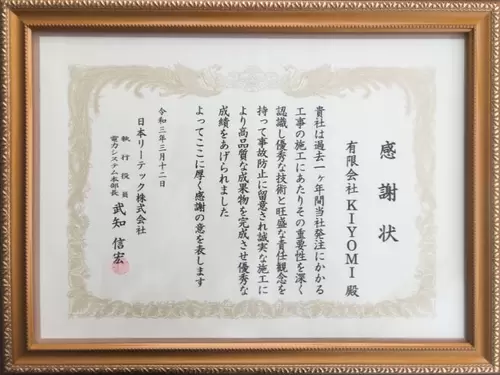 感謝状
有限会社 KIYOMI 殿
貴社は過去一ヶ年間当社発注にかかる
工事の施工にあたりその重要性を深く
認識し優秀な技術と旺盛な責任観念を
持って事故防止に留意され誠実な施工に
より高品質な成果物を完成させ優秀な
成績をあげられました
よってここに厚く感謝の意を表します
令和三年三月十二日
日本リーテック株式会社
執行役員
電力システム本部長
武知信宏